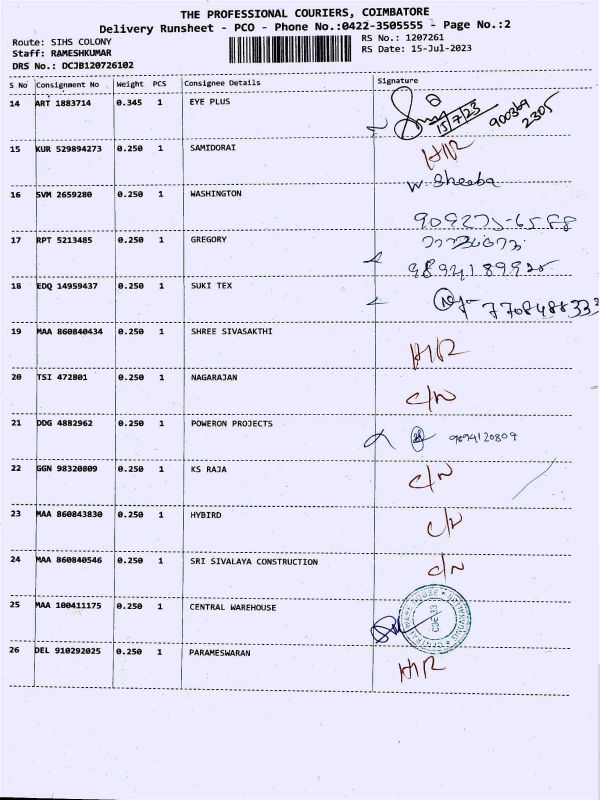 THE PROFESSIONAL COURIERS, COIMBATORE
Delivery Runsheet - PCO - Phone No.:0422-3505555 - Page No.:2
Route: SIHS COLONY RS No.: 1207261
Staff: RAMESHKUMAR RS Date: 15-Jul-2023
DRS No.: DCJB120726102
S No Consignment No Weight PCS Consignee Details Signature
14 ART 1883714 0.345 1 EYE PLUS 15/7/23 900369 2305
15 KUR 529894273 0.250 1 SAMIDORAI H/R
16 SVM 2659280 0.250 1 WASHINGTON W. Sheeba
909275-6588
17 RPT 5213485 0.250 1 GREGORY
9894189925
18 EDQ 14959437 0.250 1 SUKI TEX 7708488333
19 MAA 860840434 0.250 1 SHREE SIVASAKTHI H/R
20 TSI 472801 0.250 1 NAGARAJAN C/N
21 DDG 4882962 0.250 1 POWERON PROJECTS 9894120809
22 GGN 98320809 0.250 1 KS RAJA C/N
23 MAA 860843830 0.250 1 HYBIRD C/N
24 MAA 860840546 0.250 1 SRI SIVALAYA CONSTRUCTION C/N
25 MAA 100411175 0.250 1 CENTRAL WAREHOUSE
26 DEL 910292025 0.250 1 PARAMESWARAN H/R